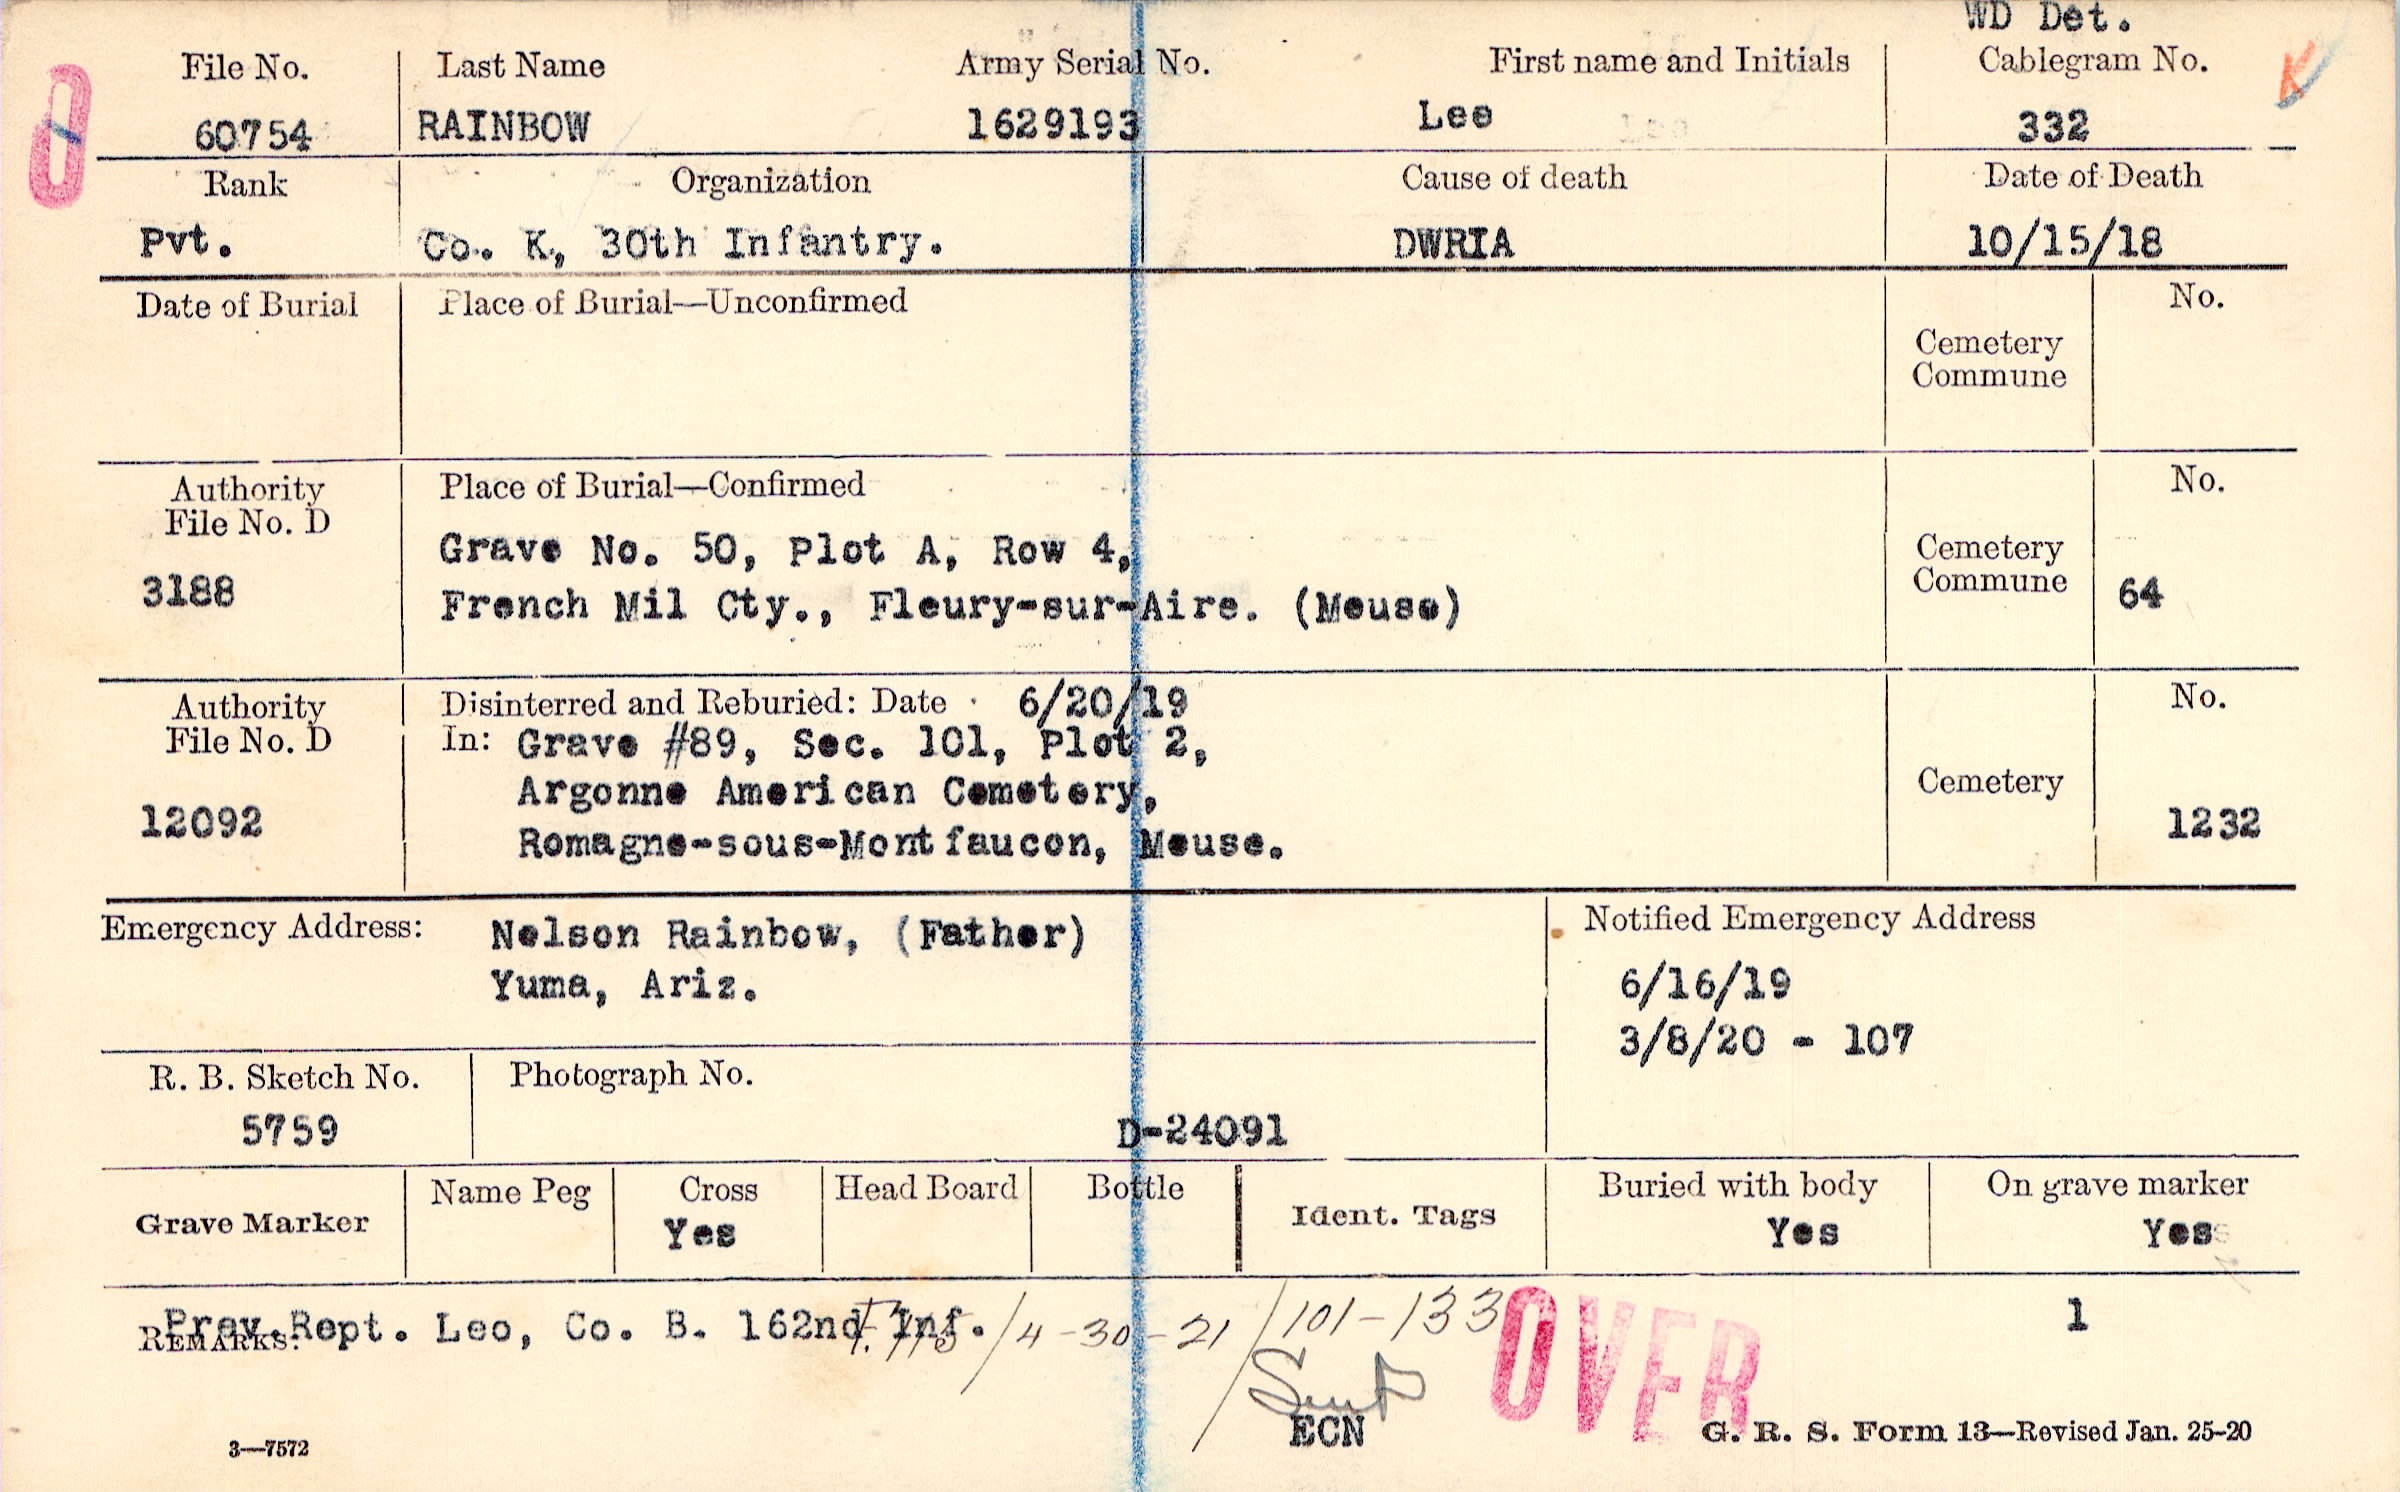 WD Det.
File No. Last Name Army Serial No. First name and Initials Cablegram No. K
0 60754 RAINBOW 1629193 Lee 332
Rank Organization Cause of death Date of Death
Pvt. Co. K, 30th Infantry. DWRIA 10/15/18
Date of Burial Place of Burial—Unconfirmed No.
Cemetery
Commune
Authority Place of Burial—Confirmed No.
File No. D
Grave No. 50, Plot A, Row 4, Cemetery
3188 French Mil Cty., Fleury-sur-Aire. (Meuse) Commune 64
Authority Disinterred and Reburied: Date 6/20/19 No.
File No. D In: Grave #89, Sec. 101, Plot 2,
Argonne American Cemetery, Cemetery
12092 Romagne-sous-Montfaucon, Meuse. 1232
Emergency Address: Nelson Rainbow, (Father) Notified Emergency Address
Yuma, Ariz. 6/16/19
3/8/20 - 107
R. B. Sketch No. Photograph No.
5759 D-24091
Name Peg Cross Head Board Bottle Buried with body On grave marker
Grave Marker Yes Ident. Tags Yes Yes
REMARKS: Prev. Rept. Leo, Co. B. 162nd Inf. / 4-30-21 / 101-133 1
OVER
ECN
3—7572 G. R. S. Form 13—Revised Jan. 25-20